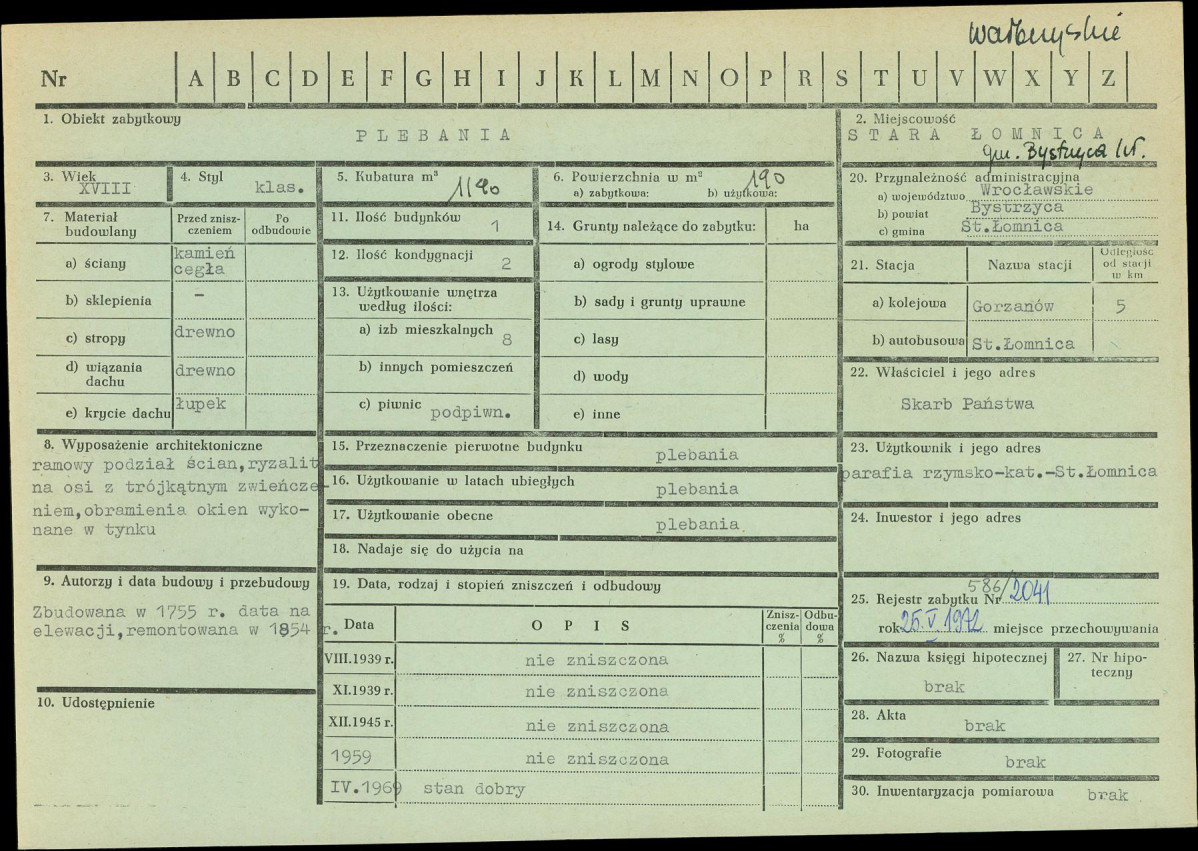 wałbrzyskie
Nr A B C D E F G H I J K L M N O P R S T U V W X Y Z
1. Obiekt zabytkowy
PLEBANIA
2. Miejscowość
STARA ŁOMNICA
gm. Bystrzyca Kł.
3. Wiek
XVIII
4. Styl
klas.
5. Kubatura m³
1190
6. Powierzchnia w m²
190
a) zabytkowa: b) użytkowa:
20. Przynależność administracyjna
a) województwo Wrocławskie
b) powiat Bystrzyca
c) gmina St.Łomnica
7. Materiał budowlany
Przed zniszczeniem
Po odbudowie
a) ściany kamień
cegła
b) sklepienia –
c) stropy drewno
d) wiązania dachu drewno
e) krycie dachu łupek
11. Ilość budynków 1
12. Ilość kondygnacji 2
13. Użytkowanie wnętrza
według ilości:
a) izb mieszkalnych 8
b) innych pomieszczeń
c) piwnic podpiwn.
14. Grunty należące do zabytku: ha
a) ogrody stylowe
b) sady i grunty uprawne
c) lasy
d) wody
e) inne
21. Stacja Nazwa stacji Odległość
od stacji
w km
a) kolejowa Gorzanów 5
b) autobusowa St.Łomnica
22. Właściciel i jego adres
Skarb Państwa
8. Wyposażenie architektoniczne
ramowy podział ścian,ryzalit
na osi z trójkątnym zwieńcze-
niem,obramienia okien wyko-
nane w tynku
15. Przeznaczenie pierwotne budynku
plebania
16. Użytkowanie w latach ubiegłych
plebania
17. Użytkowanie obecne
plebania
18. Nadaje się do użycia na
23. Użytkownik i jego adres
parafia rzymsko-kat.-St.Łomnica
24. Inwestor i jego adres
9. Autorzy i data budowy i przebudowy
Zbudowana w 1755 r. data na
elewacji,remontowana w 1854 r.
10. Udostępnienie
19. Data, rodzaj i stopień zniszczeń i odbudowy
Data OPIS Znisz-
czenia
% Odbu-
dowa
%
VIII.1939 r. nie zniszczona
XI.1939 r. nie zniszczona
XII.1945 r. nie zniszczona
1959 nie zniszczona
IV.1969 stan dobry
25. Rejestr zabytku Nr 586/2041
rok 25.V.1972 miejsce przechowywania
26. Nazwa księgi hipotecznej
brak
27. Nr hipo-
teczny
28. Akta
brak
29. Fotografie
brak
30. Inwentaryzacja pomiarowa brak